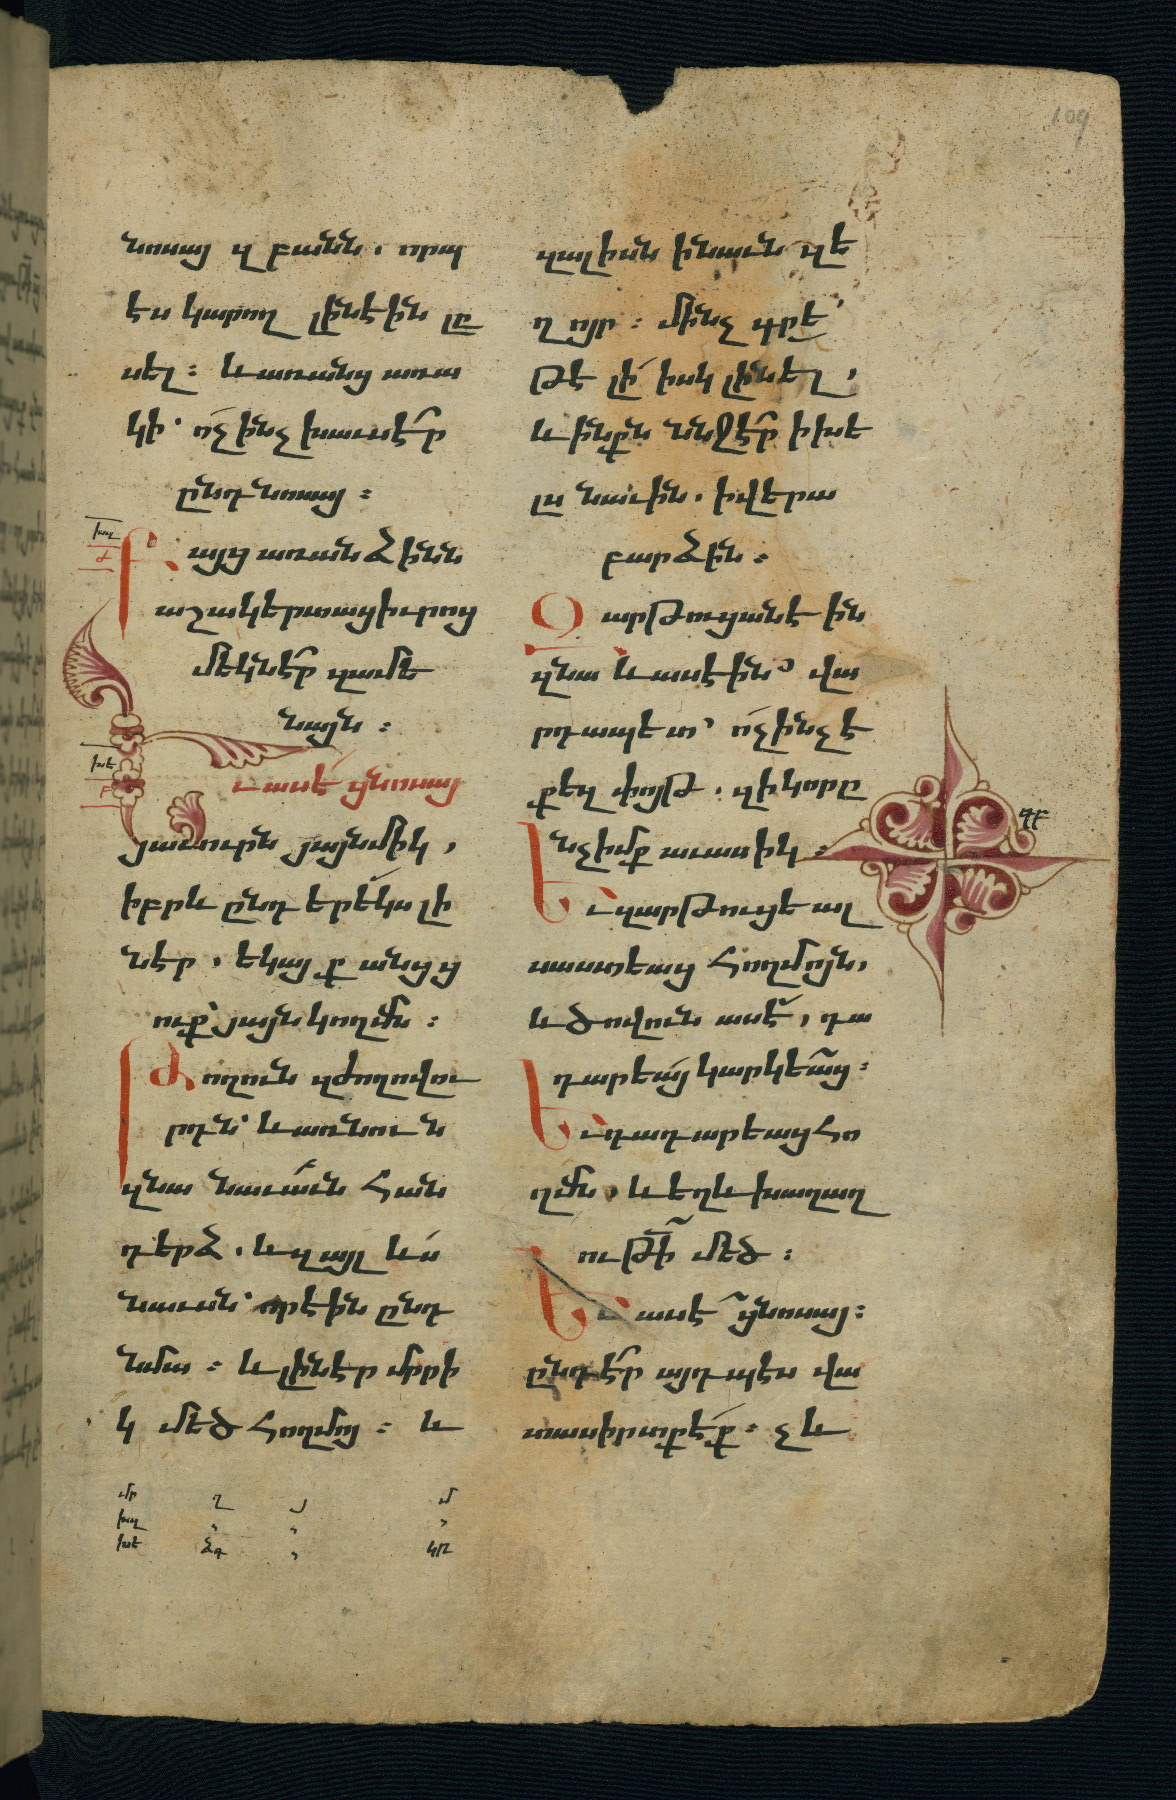 109
նոսայ զբանն. որպ
էս կարող լինէին լը
սել։ և առանց առա
կի՝ ոչ ինչ խաւսէր
ընդ նոսայ։
Բայց առանձինն
աշակերտացն իւրոց
մեկնէր զամե
նայն։
Եւ ասէ ցնոսայ
յաւուրն յայնմիկ,
իբրև ընդ երեկս լի
նէր. եկայք անցց
ուք յայն կողմն։
Թողուն զժողովու
րդն՝ և առնուն
զնա նաւաւն հան
դերձ. և զայլ ևս
նաւսն՝ որ էին ընդ
նմա։ և լինէր մրրի
կ մեծ հողմոյ։ և
զալիսն ի նաւն զե
ղոյր։ մինչ գրե՛
թէ լի իսկ լինել,
և ինքն ննջէր ի խե
լս նաւին. ի վերա
բարձին։
Զարթուցանէին
զնա և ասէին՝ վա
րդապետ՝ ոչ ինչ է
քեզ փոյթ. զի կորը
նչիմք աւասիկ։
Եւ զարթուցեալ
սաստեաց հողմոյն,
և ծովուն ասէ, դա
դարեաց կարկեաց։
Եւ դադարեաց հո
ղմն, և եղև խաղաղ
ութի մեծ։
Եւ ասէ ցնոսայ։
ընդէր այդպէս վա
տասիրտք էք։ չև